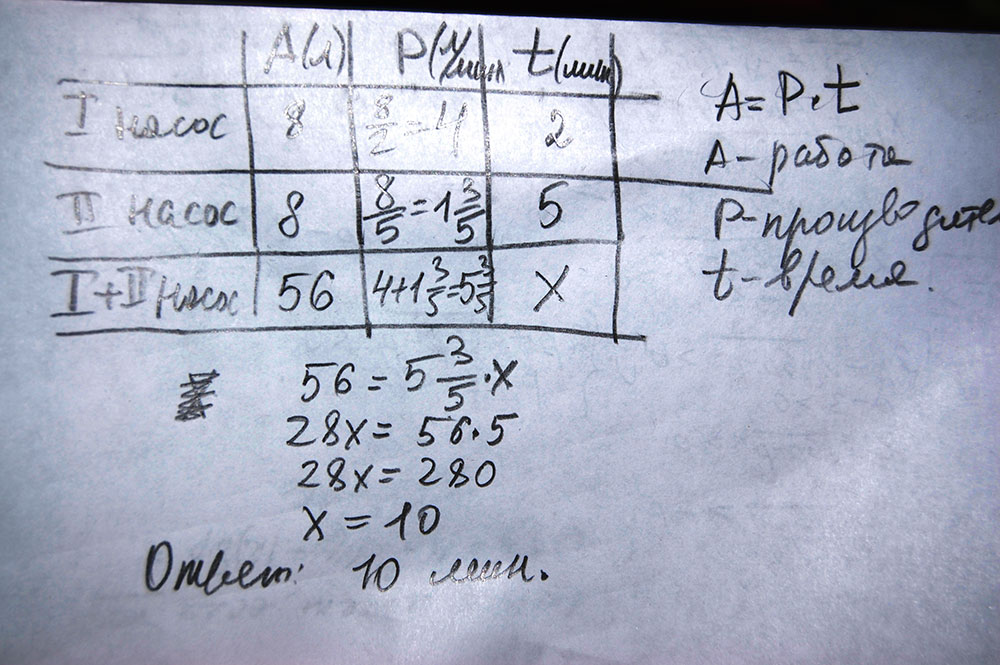 A(л) P(л/мин) t(мин)
I насос 8 8/2=4 2
II насос 8 8/5=1 3/5 5
I+II насос 56 4+1 3/5=5 3/5 x
A=P·t
A-работа
P-производител
t-время.
56=5 3/5·x
28x=56·5
28x=280
x=10
Ответ: 10 мин.